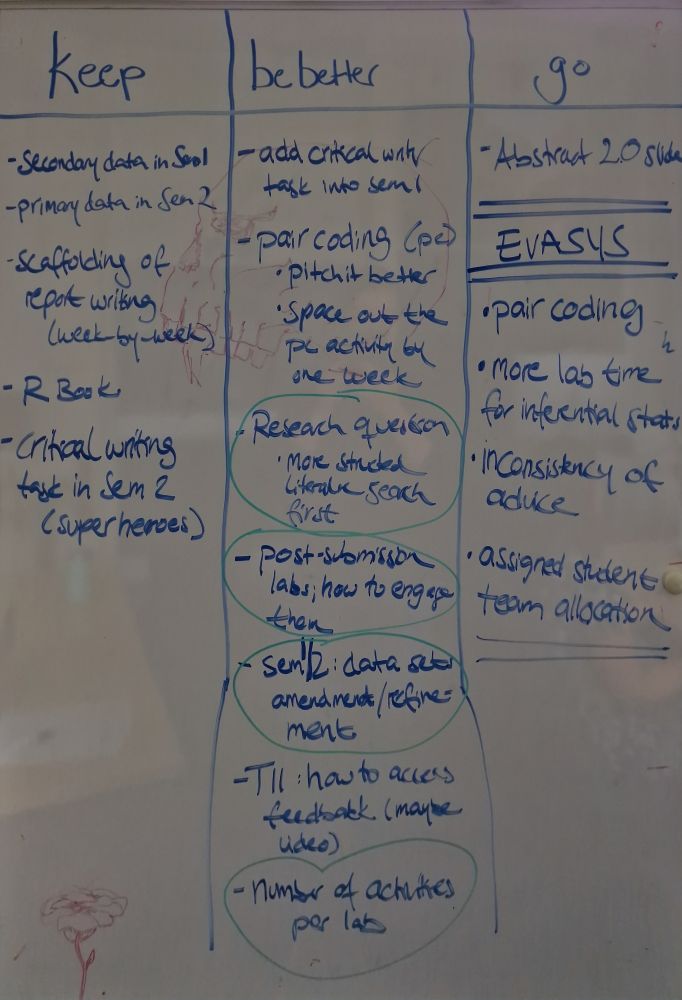 keep
- secondary data in Sem1
- primary data in Sem 2
- scaffolding of
report writing
(week-by-week)
- R Book
- critical writing
task in Sem 2
(superheroes)
be better
- add critical
task into sem 1
- pair coding (pc)
• pitch it better
• space out the
pc activity by
one week
- Research question
• more
literature search
first
- post-submission
labs; how to engage
them
- sem 1/2: data
amendments/refine-
ment
- TII: how to access
feedback (maybe
video)
- number of activities
per lab
go
- Abstract 2.0 slide
EvASYS
• pair coding
• more lab time
for inferential stats
• inconsistency of
advice
• assigned student
team allocation